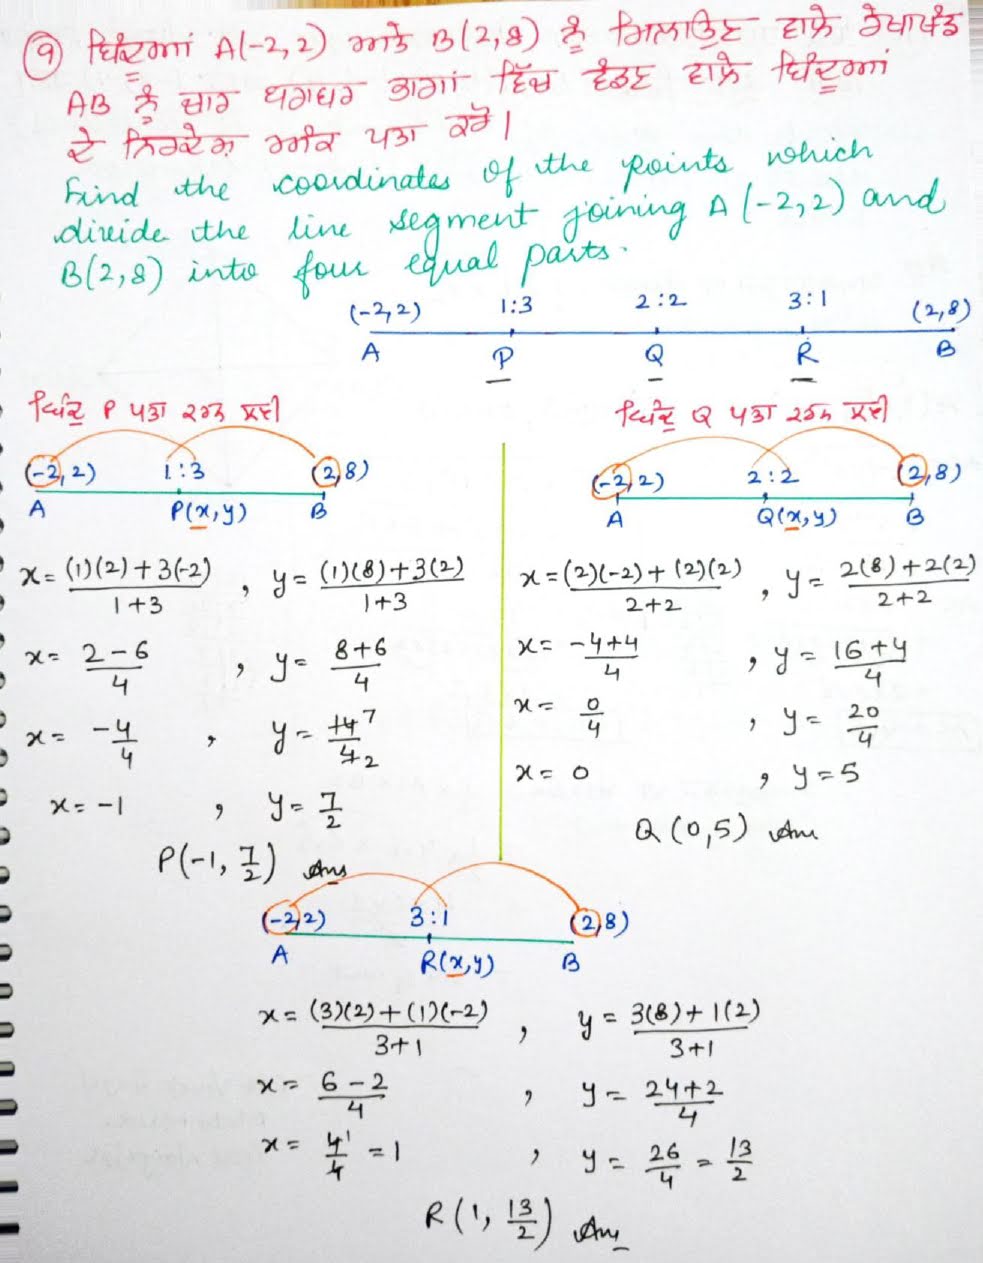 ⑨ ਬਿੰਦੂਆਂ A(-2,2) ਅਤੇ B(2,8) ਨੂੰ ਮਿਲਾਉਣ ਵਾਲੇ ਰੇਖਾਖੰਡ
AB ਨੂੰ ਚਾਰ ਬਰਾਬਰ ਭਾਗਾਂ ਵਿੱਚ ਵੰਡਣ ਵਾਲੇ ਬਿੰਦੂਆਂ
ਦੇ ਨਿਰਦੇਸ਼ ਅੰਕ ਪਤਾ ਕਰੋ।
Find the coordinates of the points which
divide the line segment joining A(-2,2) and
B(2,8) into four equal parts.
(-2,2) 1:3 2:2 3:1 (2,8)
A P Q R B
ਬਿੰਦੂ P ਪਤਾ ਕਰਨ ਲਈ
(-2,2) 1:3 (2,8)
A P(x,y) B
x = (1)(2)+3(-2)/1+3 , y = (1)(8)+3(2)/1+3
x = 2-6/4 , y = 8+6/4
x = -4/4 , y = 14 7/4 2
x = -1 , y = 7/2
P(-1, 7/2) Ans
ਬਿੰਦੂ Q ਪਤਾ ਕਰਨ ਲਈ
(-2,2) 2:2 (2,8)
A Q(x,y) B
x = (2)(-2)+(2)(2)/2+2 , y = 2(8)+2(2)/2+2
x = -4+4/4 , y = 16+4/4
x = 0/4 , y = 20/4
x = 0 , y = 5
Q(0,5) Ans
(-2,2) 3:1 (2,8)
A R(x,y) B
x = (3)(2)+(1)(-2)/3+1 , y = 3(8)+1(2)/3+1
x = 6-2/4 , y = 24+2/4
x = 4 1/4 = 1 , y = 26/4 = 13/2
R(1, 13/2) Ans